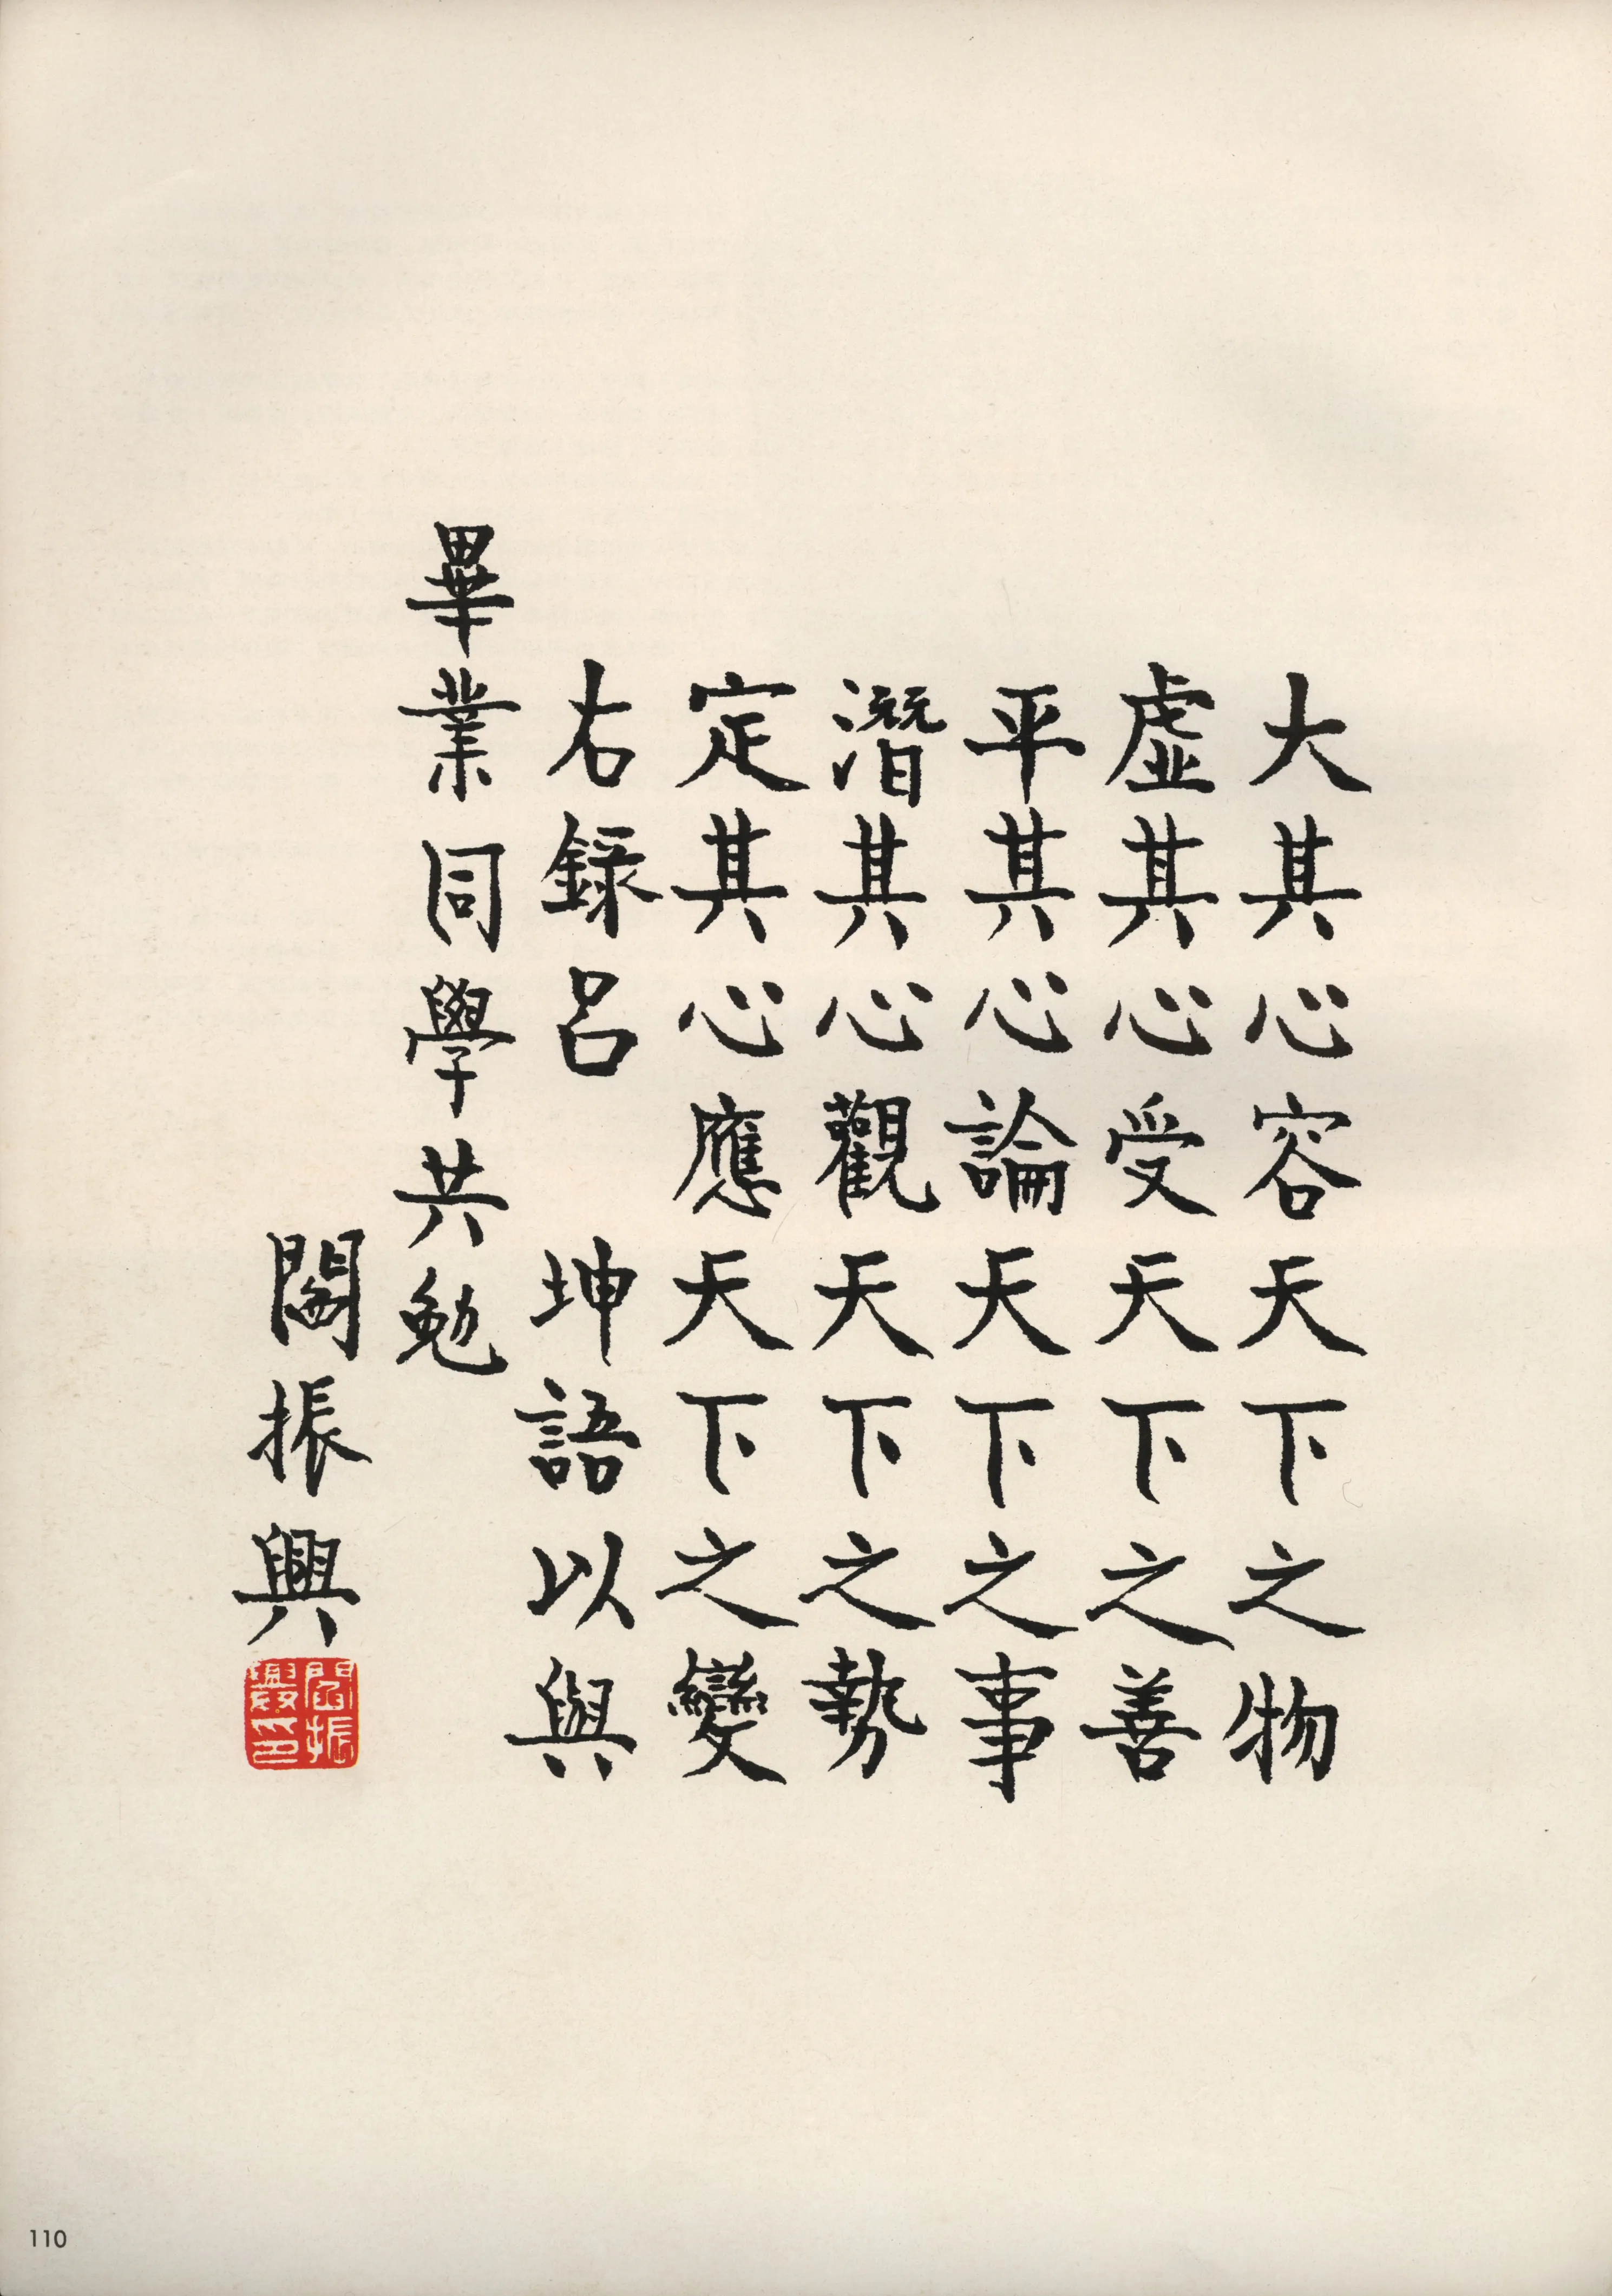 大其心容天下之物
虛其心受天下之善
平其心論天下之事
潛其心觀天下之勢
定其心應天下之變
右錄呂坤語以與
畢業同學共勉
閻振興
閻振興印
110